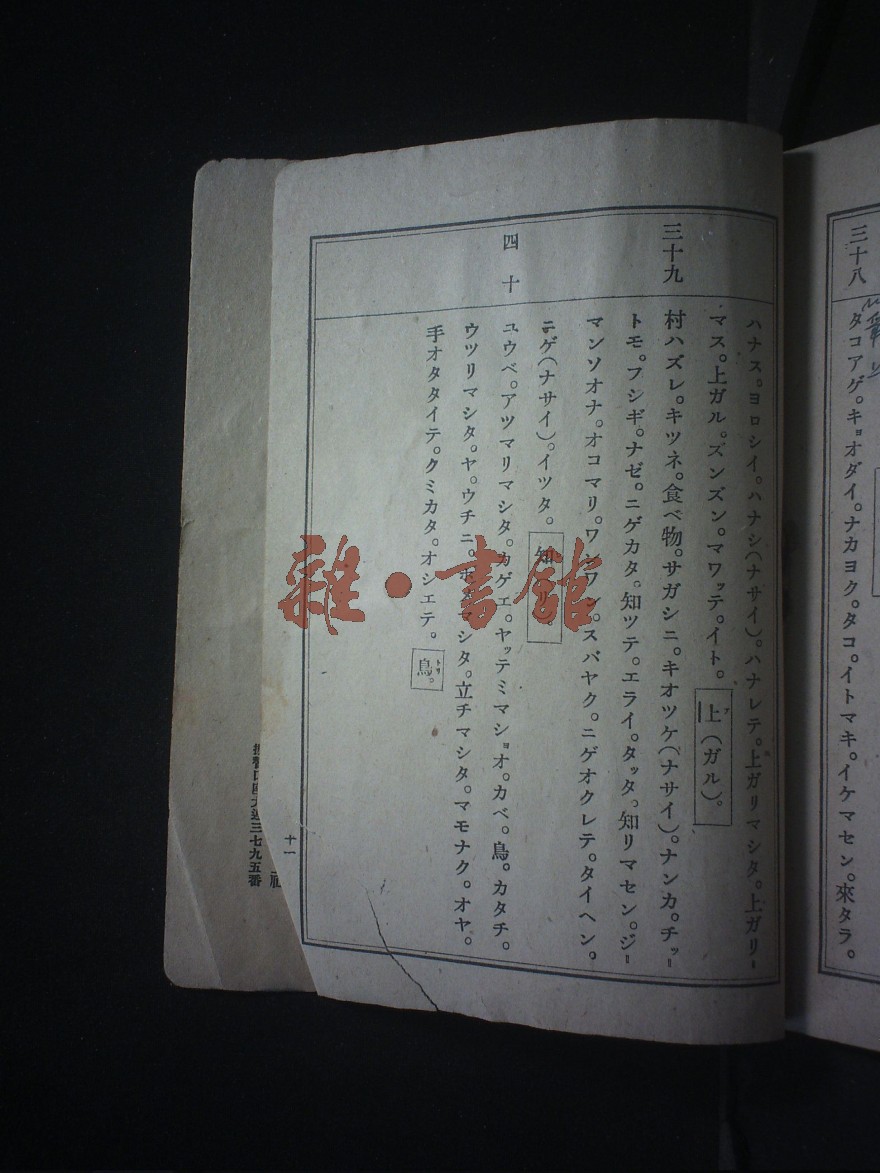 三十八
タコアゲ。キョオダイ。ナカヨク。タコ。イトマキ。イケマセン。來タラ。
ハナス。ヨロシイ。ハナシ(ナサイ)。ハナレテ。上ガリマシタ。上ガリ=
マス。上ガル。ズンズン。マワッテ。イト。上(ガル)。
三十九
村ハズレ。キツネ。食ベ物。サガシニ。キオツケ(ナサイ)。ナンカ。チッ=
トモ。フシギ。ナゼ。ニゲカタ。知ツテ。エライ。タッタ。知リマセン。ジ=
マンソオナ。オコマリ。ワンワン。スバヤク。ニゲオクレテ。タイヘン。
ニゲ(ナサイ)。イツタ。知
四十
ユウベ。アツマリマシタ。カゲエ。ヤッテミマショオ。カベ。鳥。カタチ。
ウツリマシタ。ヤ。ウチニ。マシタ。立チマシタ。マモナク。オヤ。
手オタタイテ。クミカタ。オシエテ。鳥。
トリ
十一
三七九五番
雜·書館